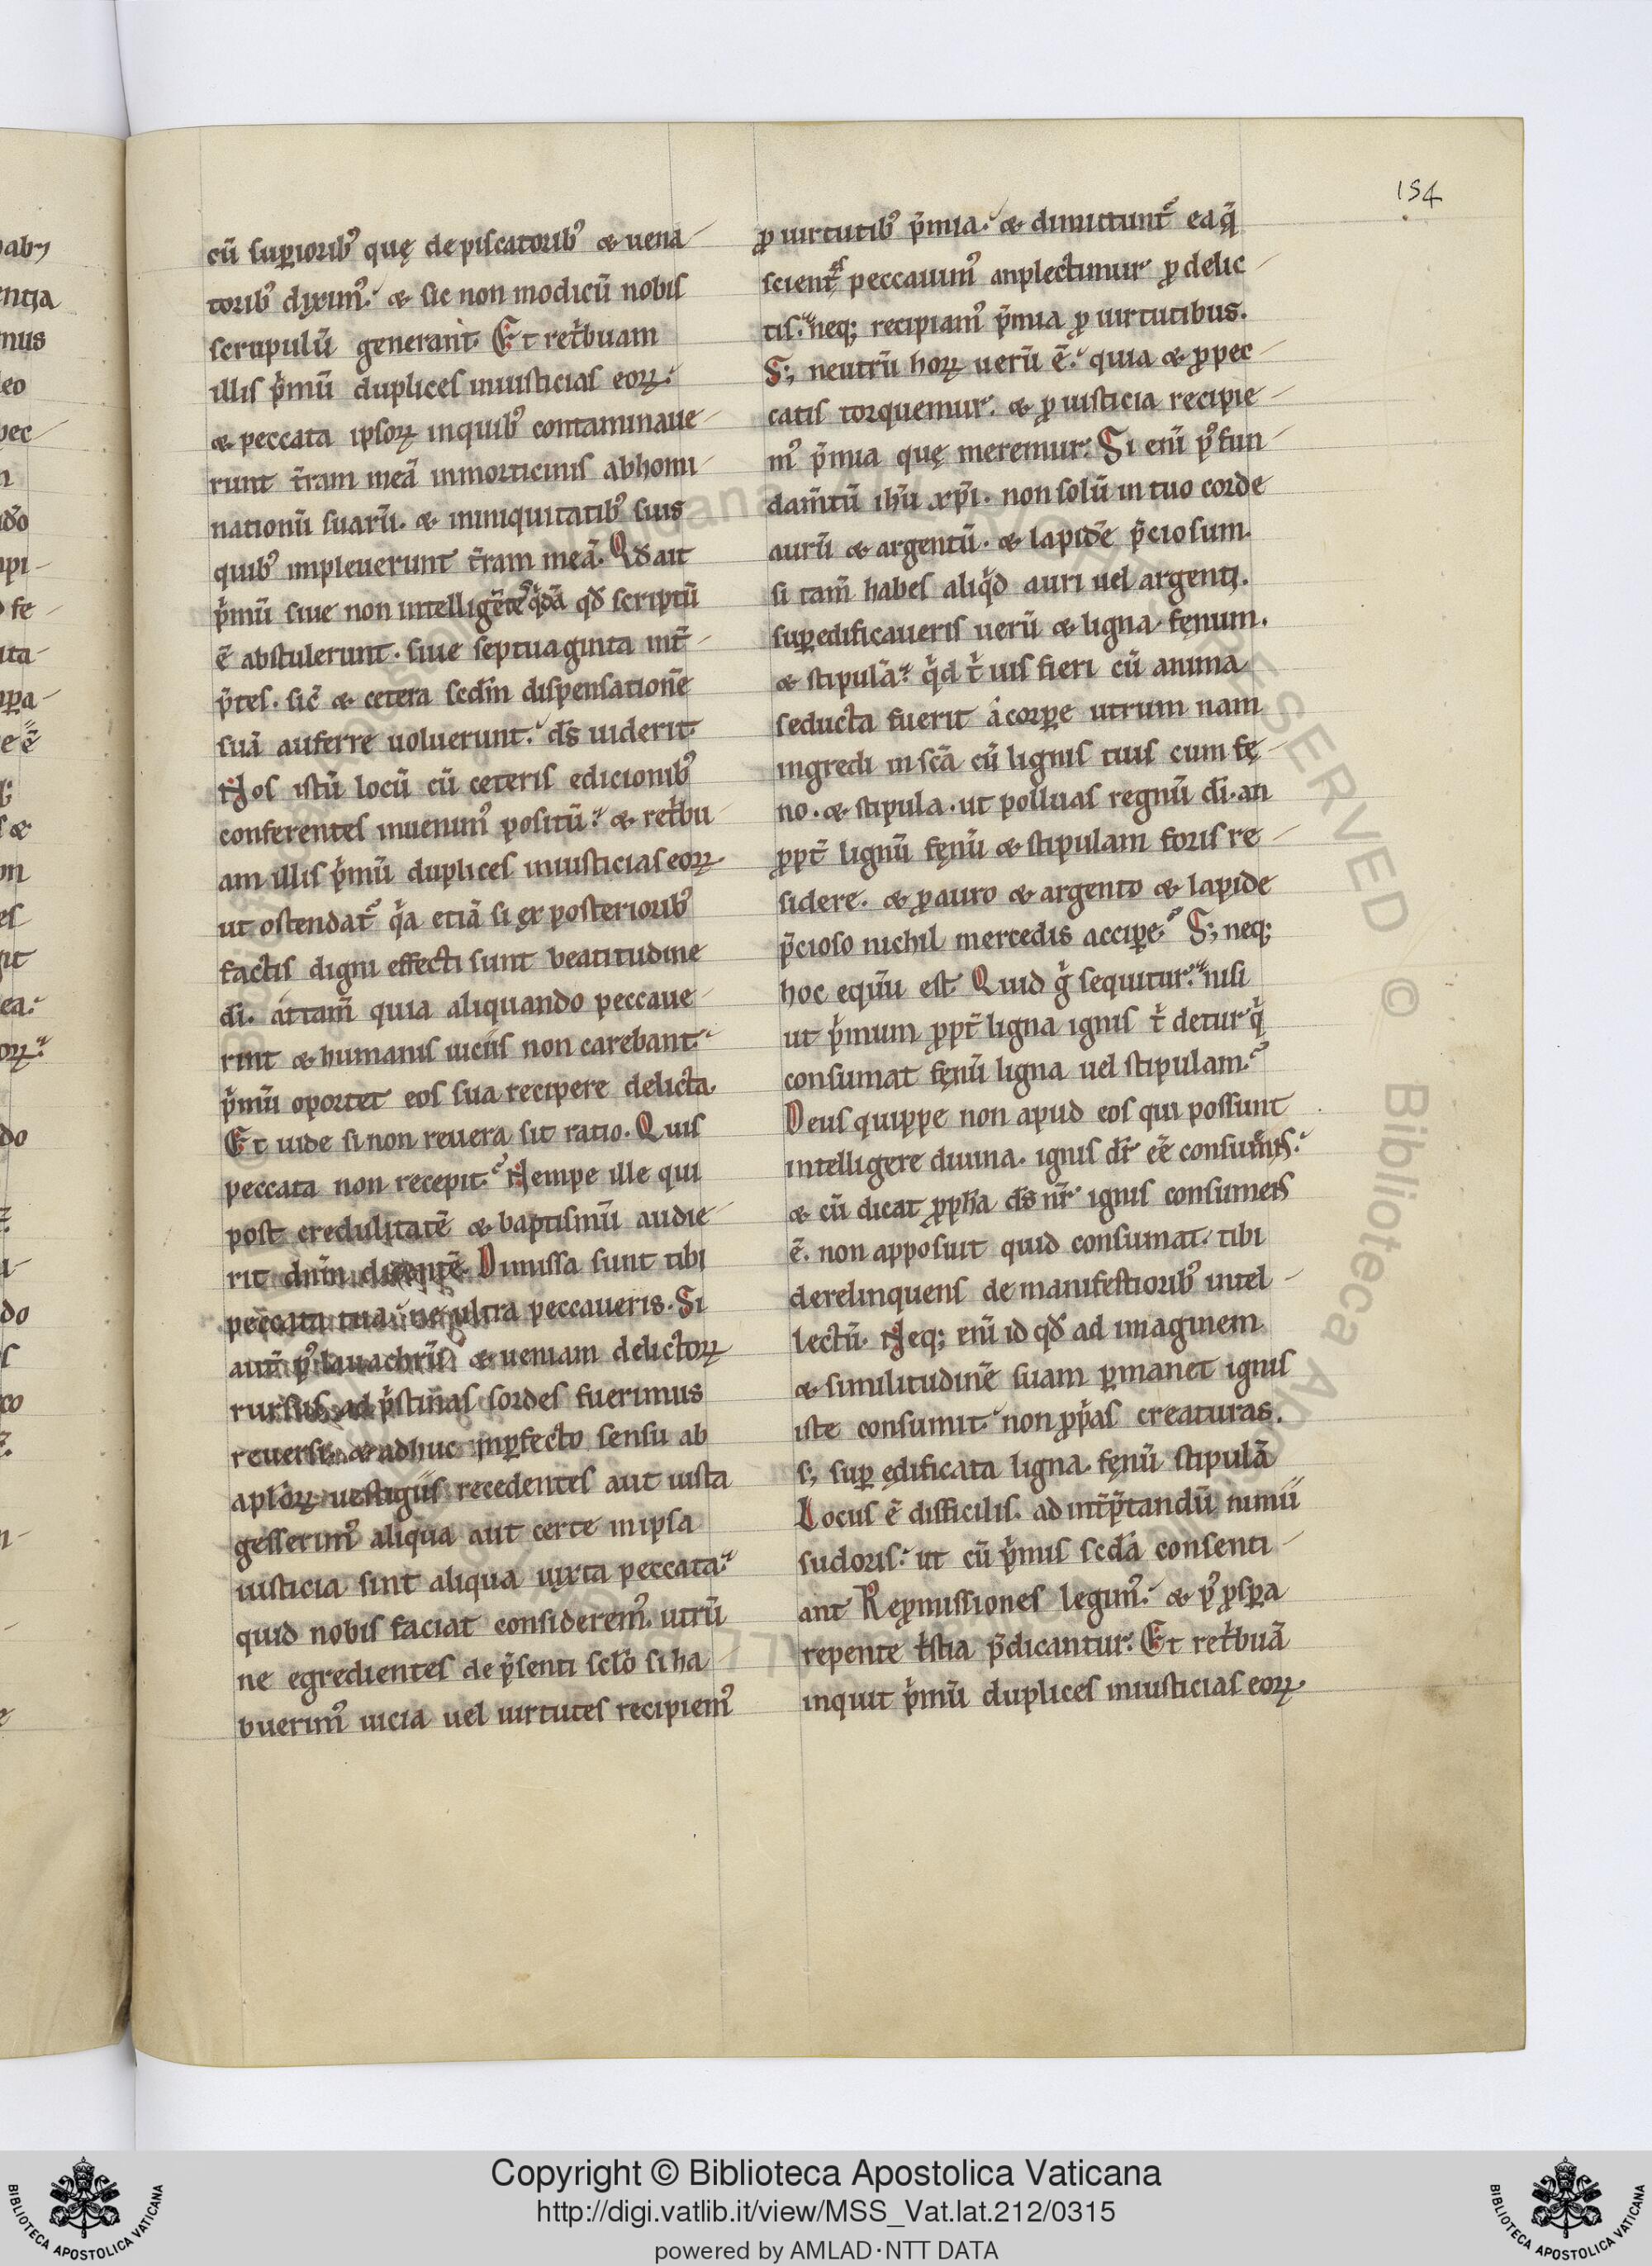 154
cũ suꝑiorib᷒ quę de piscatorib᷒ & uena-
torib᷒ dyxim᷒. & sic non modicũ nobis
scrupulũ generant. Et ret̾buam
illis p̾mũ duplices iniusticias eoꝝ.
& peccata ipsoꝝ inquib᷒ contaminaue-
runt t̃ram meã inmorticinis abhomi-
nationũ suarũ. & ininiquitatib᷒ suis
quib᷒ impleuerunt t̃ram meã. Qđ ait
p̾mũ siue non intelligẽte᷒ q̾dã qđ scriptũ
ẽ abstulerunt. siue septuaginta int̃-
p̃tes. sic̃ & cetera scđm dispensationẽ
suã auferre uoluerunt. d̃s uiderit.
Nos istũ locũ cũ ceteris edicionib᷒
conferentes inuenim᷒ positũ. & ret̾bu-
am illis p̾mũ duplices iniusticias eoꝝ.
ut ostendat᷒ q̾a etiã si ex posteriorib᷒
factis digni effecti sunt beatitudine
di̅. attam̃ quia aliquando peccaue-
rint & humanis uiciis non carebant.
p̾mũ oportet eos sua recipere delicta.
Et uide si non reuera sit ratio. Quis
peccata non recepit. Nempe ille qui
post credulitatẽ & baptismũ audie-
rit dñm dicentẽ. Dimissa sunt tibi
peccata tua. ne ultra peccaueris. Si
aut̃ p᷒ lauachrũ & ueniam delictoꝝ
rursus ad p̾stinas sordes fuerimus
reuersi. & adhuc inꝑfecto sensu ab
aploꝝ uestigiis recedentes aut iusta
gesserim᷒ aliqua aut certe in ipsa
iusticia sint aliqua iuxta peccata.
quid nobis faciat considerem᷒. utrũ
ne egredientes de p̃senti sclo̅ si ha-
buerim᷒ uicia uel uirtutes recipiem᷒
ꝓ uirtutib᷒ p̃mia. & dimittunt᷒ ea q̃
scient̃s peccauim᷒ anplectimur ꝓ delic-
tis. neq; recipiam᷒ p̃mia ꝓ uirtutibus.
S; neutrũ hoꝝ uerũ ẽ. quia & ꝓ pec-
catis torquemur. & ꝓ iusticia recipie-
m᷒ p̃mia quę meremur. Si enĩ p᷒ fun-
dam̃tũ ihũ xp̃i. non solũ in tuo corde
aurũ & argentũ. & lapidẽ p̃ciosum.
si tam̃ habes aliq̾d auri uel argenti.
suꝑedificaueris uerũ & ligna fęnum.
& stipulã. q̾d t̾ uis fieri cũ anima
seducta fuerit a corꝑe utrum nam
ingredi in sc̃a cũ lignis tuis cum fę-
no. & stipula. ut polluas regnũ di̅. an
ꝓpt̃ lignũ fęnũ & stipulam foris re-
sidere. & ꝓ auro & argento & lapide
p̃cioso nichil mercedis acciꝑe. S; neq;
hoc equũ est. Quid g̾ sequitur. nisi
ut p̾mum ꝓpt̃ ligna ignis t̾ detur q̾
consumat fęnũ ligna uel stipulam.
Deus quippe non apud eos qui possunt
intelligere diuina. ignis dr̃ eẽ consumẽs.
& cũ dicat ꝓph̃a d̃s nr̃ ignis consumens
ẽ. non apposuit quid consumat. tibi
derelinquens de manifestiorib᷒ intel-
lectũ. Neq; enĩ id qđ ad imaginem
& similitudinẽ suam ꝑmanet ignis
iste consumit. non ꝓp̾as creaturas.
s; suꝑ ędificata ligna. fęnũ stipulã
Locus ẽ difficilis. ad int̃p̃tandũ nimii
sudoris. ut cũ p̾mis scđa consenti-
ant Reꝓmissiones legim᷒. & p᷒ ꝓsꝑa
repente t̾stia p̃dicantur. Et ret̾buã
inquit p̾mũ duplices iniusticias eoꝝ.
Copyright © Biblioteca Apostolica Vaticana
http://digi.vatlib.it/view/MSS_Vat.lat.212/0315
powered by AMLAD·NTT DATA
BIBLIOTECA APOSTOLICA VATICANA
BIBLIOTECA APOSTOLICA VATICANA